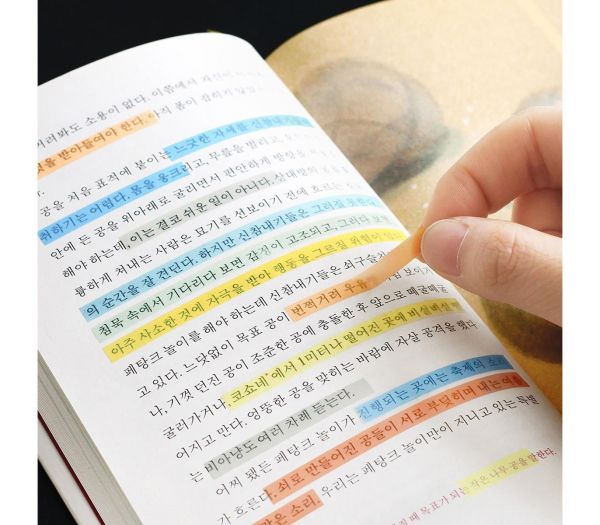 이쯤에서 자신이
러봐도 소용이 없다. 아직 몸이
것을 받아들여야 한다.
다.
공을 처음 표적에 붙이는 느긋한 자세를 신참내기가
취하기는 어렵다. 몸을 웅크리고, 무릎을 벌리고,
안에 든 공을 위아래로 굴리면서 편안하게
해야 하는데, 이는 결코 쉬운 일이 아니다. 상대방의
륭하게 쳐내는 사람은 묘기를 선보이기 전에 흐르는
의 순간을 잘 견딘다. 하지만 신참내기들은 그러질 못한다.
침묵 속에서 기다리다 보면 감정이 고조되고, 그러다 보면
아주 사소한 것에 자극을 받아 행동을 그르칠 위험이
페탕크 놀이를 해야 하는데 신참내기들은 쇠구슬
고 있다. 느닷없이 목표 공이 번쩍거려 보이거
나, 기껏 던진 공이 조준한 공에 충돌한 후 앞으로 떼굴떼굴
굴러가거나, 코쇼네*에서 1미터나 떨어진 곳에 비실비실
어지고 만다. 엉뚱한 공을 맞히는 바람에 자살 공격을 했다
는 비아냥도 여러 차례 듣는다.
어찌 됐든 페탕크 놀이가 진행되는 곳에는 축제의 소리
가 흐른다. 쇠로 만들어진 공들이 서로 부딪히며 내는
같은 소리. 우리는 페탕크 놀이만이 지니고 있는 특별
때 목표가 되는 작은 나무 공을 말한다.